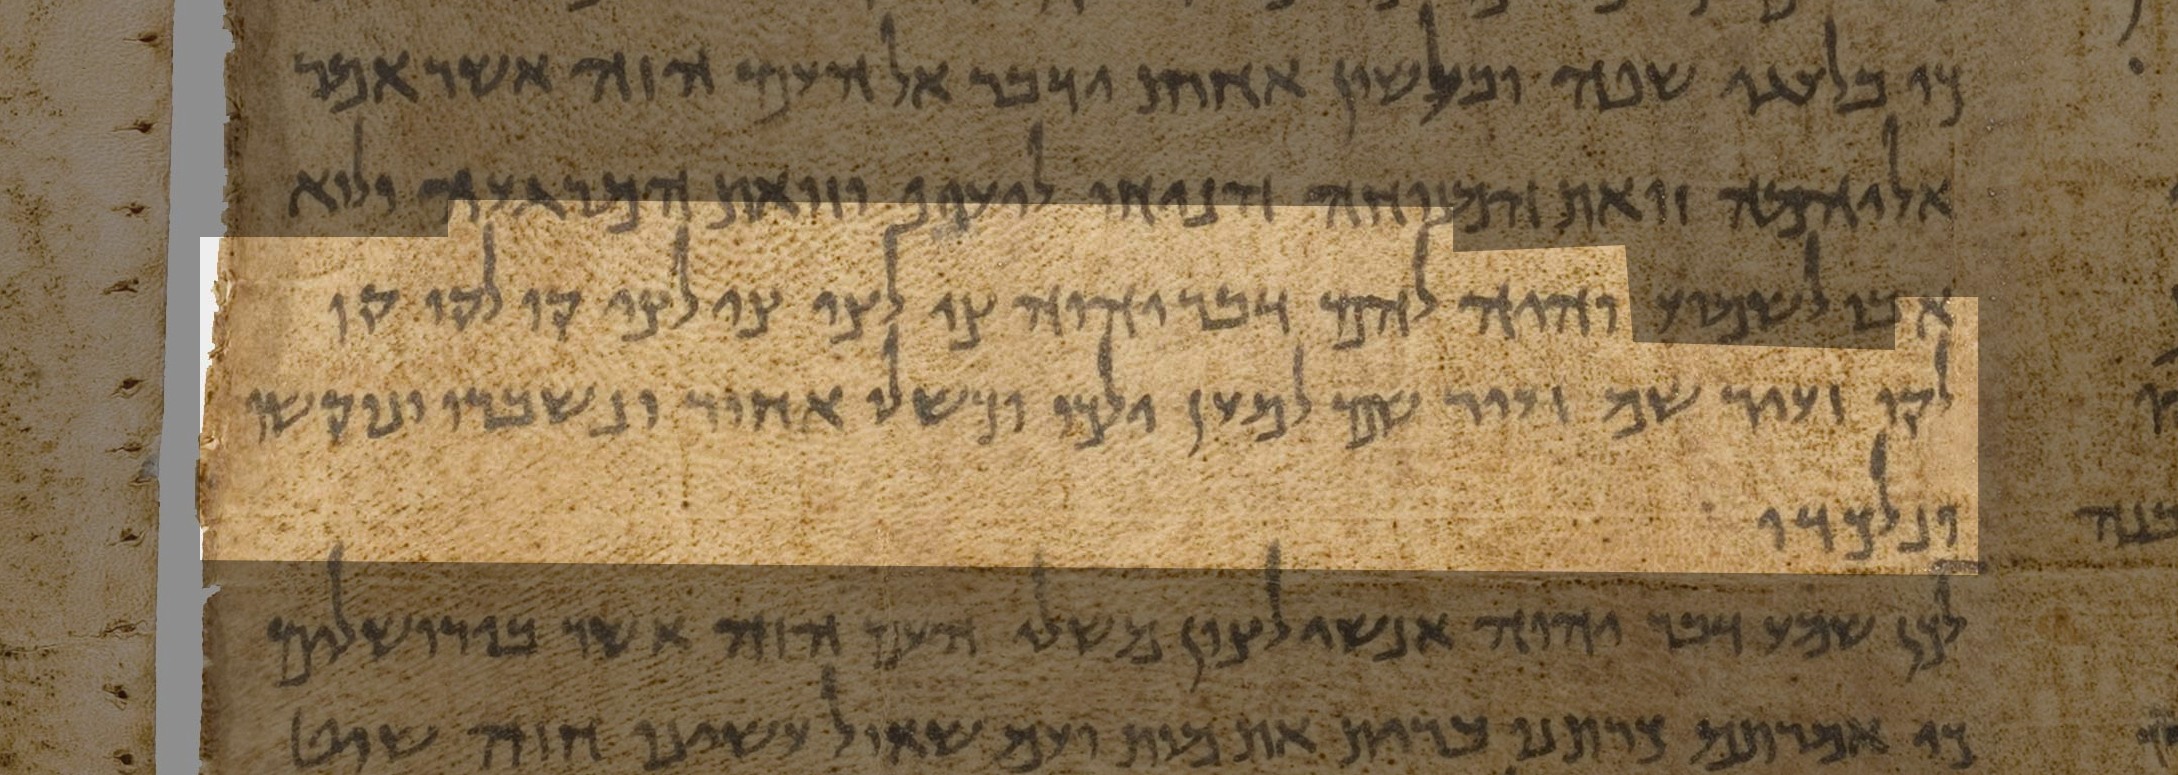 כי בלעגי שפה ובלשון אחרת ידבר אל העם הזה אשר אמר
אליהמה זואת המנוחה הניחו לעיף וזואת המרגעה ולוא
אבו לשמוע והיה להם דבר יהוה צו לצו צו לצו קו לקו קו
לקו זעיר שמ זעיר שם למען ילכו וכשלו אחור ונשברו ונוקשו
ונלכדו
לכן שמעו דבר יהוה אנשי לצון משלי העם הזה אשר בירושלים
כי אמרתמ כרתנו ברית את מות ועמ שאול עשינו חזה שוט